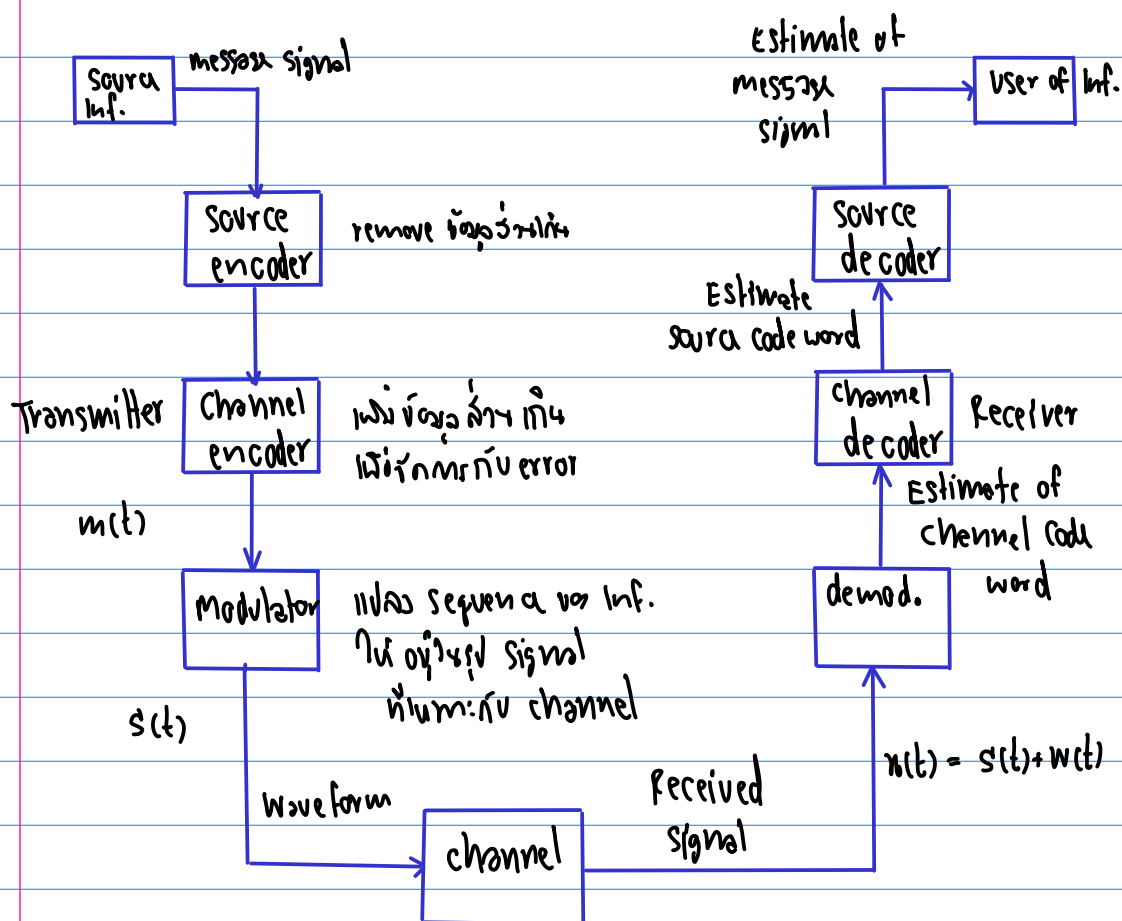 Source
Inf.
message signal
Source
encoder
remove ข้อมูลส่วนเกิน
Transmitter
Channel
encoder
เพิ่มข้อมูลส่วนเกิน
เพื่อจัดการกับ error
m(t)
Modulator
แปลง sequence ของ Inf.
ให้อยู่ในรูป signal
ที่เหมาะกับ channel
s(t)
Waveform
channel
Received
signal
x(t) = s(t)+w(t)
demod.
Estimate of
channel code
word
channel
decoder
Receiver
Estimate
source code word
Source
decoder
Estimate of
message
signal
User of Inf.